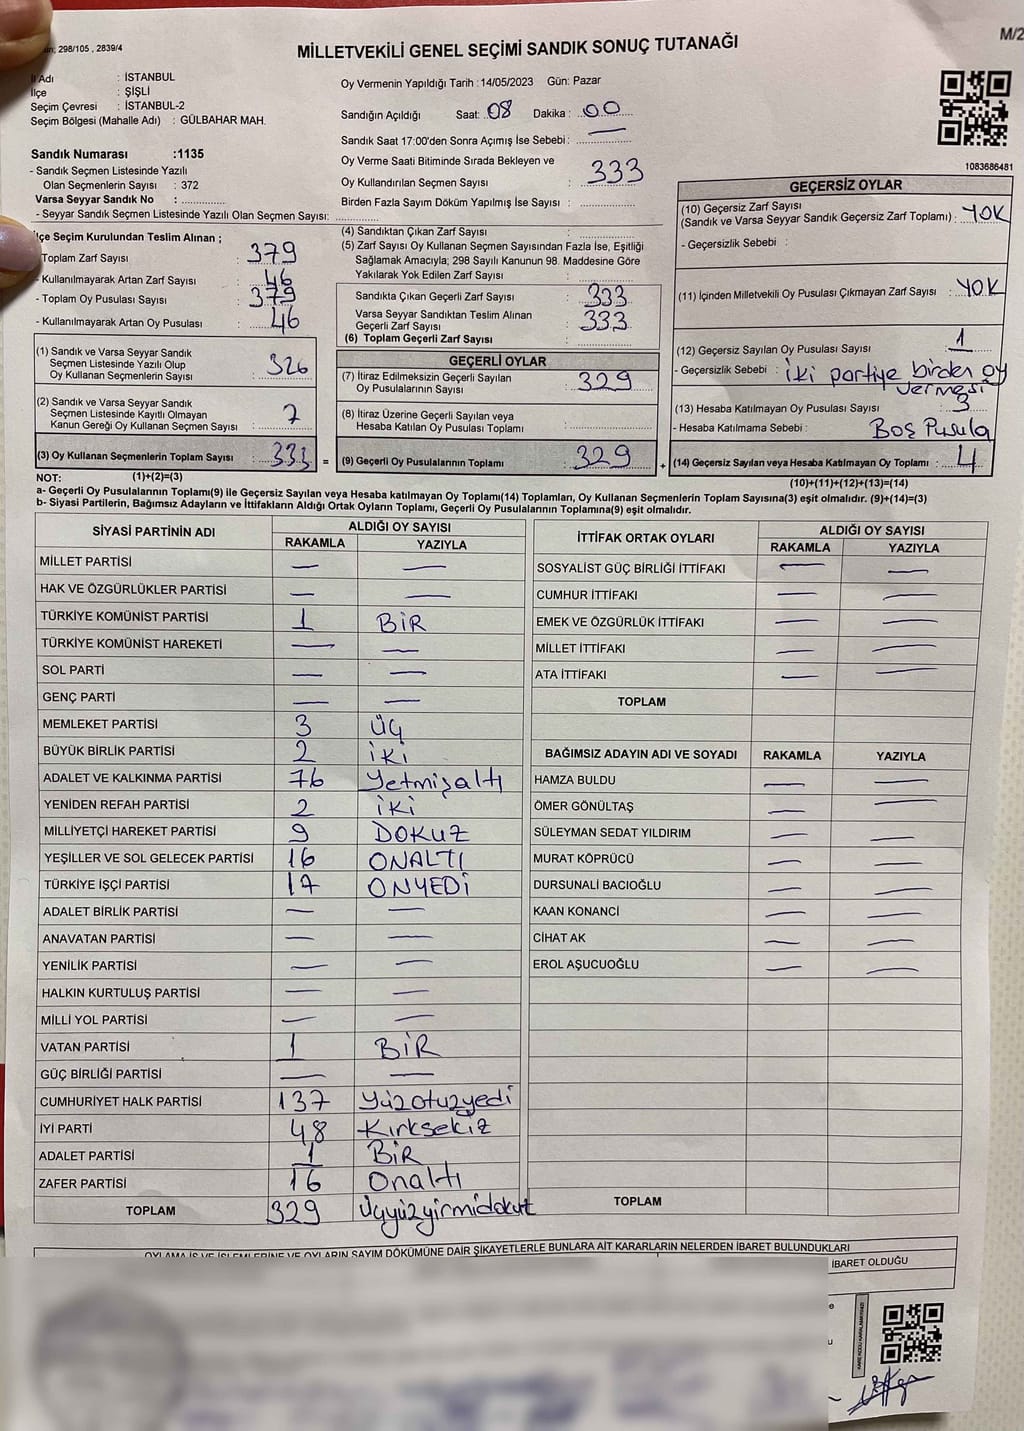 298/105 , 2839/4
MİLLETVEKİLİ GENEL SEÇİMİ SANDIK SONUÇ TUTANAĞI
M/2
İl Adı : İSTANBUL
İlçe : ŞİŞLİ
Seçim Çevresi : İSTANBUL-2
Seçim Bölgesi (Mahalle Adı) : GÜLBAHAR MAH.
Sandık Numarası :1135
- Sandık Seçmen Listesinde Yazılı
Olan Seçmenlerin Sayısı : 372
Varsa Seyyar Sandık No :
- Seyyar Sandık Seçmen Listesinde Yazılı Olan Seçmen Sayısı:
Oy Vermenin Yapıldığı Tarih : 14/05/2023 Gün: Pazar
Sandığın Açıldığı Saat: 08 Dakika : 00
Sandık Saat 17:00'den Sonra Açımış İse Sebebi :
Oy Verme Saati Bitiminde Sırada Bekleyen ve
Oy Kullandırılan Seçmen Sayısı : 333
Birden Fazla Sayım Döküm Yapılmış İse Sayısı :
1083686481
İlçe Seçim Kurulundan Teslim Alınan ;
Toplam Zarf Sayısı : 379
- Kullanılmayarak Artan Zarf Sayısı : 46
- Toplam Oy Pusulası Sayısı : 379
- Kullanılmayarak Artan Oy Pusulası : 46
(1) Sandık ve Varsa Seyyar Sandık
Seçmen Listesinde Yazılı Olup
Oy Kullanan Seçmenlerin Sayısı : 326
(2) Sandık ve Varsa Seyyar Sandık
Seçmen Listesinde Kayıtlı Olmayan
Kanun Gereği Oy Kullanan Seçmen Sayısı : 7
(3) Oy Kullanan Seçmenlerin Toplam Sayısı : 333 =
(1)+(2)=(3)
(4) Sandıktan Çıkan Zarf Sayısı :
(5) Zarf Sayısı Oy Kullanan Seçmen Sayısından Fazla İse, Eşitliği
Sağlamak Amacıyla; 298 Sayılı Kanunun 98. Maddesine Göre
Yakılarak Yok Edilen Zarf Sayısı :
Sandıkta Çıkan Geçerli Zarf Sayısı : 333
Varsa Seyyar Sandıktan Teslim Alınan
Geçerli Zarf Sayısı : 333
(6) Toplam Geçerli Zarf Sayısı :
GEÇERLİ OYLAR
(7) İtiraz Edilmeksizin Geçerli Sayılan
Oy Pusulalarının Sayısı : 329
(8) İtiraz Üzerine Geçerli Sayılan veya
Hesaba Katılan Oy Pusulası Toplamı :
(9) Geçerli Oy Pusulalarının Toplamı : 329 +
GEÇERSİZ OYLAR
(10) Geçersiz Zarf Sayısı
(Sandık ve Varsa Seyyar Sandık Geçersiz Zarf Toplamı) : YOK
- Geçersizlik Sebebi :
(11) İçinden Milletvekili Oy Pusulası Çıkmayan Zarf Sayısı : YOK
(12) Geçersiz Sayılan Oy Pusulası Sayısı : 1
- Geçersizlik Sebebi : İki partiye birden oy
vermesi
(13) Hesaba Katılmayan Oy Pusulası Sayısı : 3
- Hesaba Katılmama Sebebi : Boş Pusula
(14) Geçersiz Sayılan veya Hesaba Katılmayan Oy Toplamı : 4
(10)+(11)+(12)+(13)=(14)
NOT:
a- Geçerli Oy Pusulalarının Toplamı(9) ile Geçersiz Sayılan veya Hesaba katılmayan Oy Toplamı(14) Toplamları, Oy Kullanan Seçmenlerin Toplam Sayısına(3) eşit olmalıdır. (9)+(14)=(3)
b- Siyasi Partilerin, Bağımsız Adayların ve İttifakların Aldığı Ortak Oyların Toplamı, Geçerli Oy Pusulalarının Toplamına(9) eşit olmalıdır.
SİYASİ PARTİNİN ADI ALDIĞI OY SAYISI
RAKAMLA YAZIYLA
MİLLET PARTİSİ — —
HAK VE ÖZGÜRLÜKLER PARTİSİ — —
TÜRKİYE KOMÜNİST PARTİSİ 1 BİR
TÜRKİYE KOMÜNİST HAREKETİ — —
SOL PARTİ — —
GENÇ PARTİ — —
MEMLEKET PARTİSİ 3 ÜÇ
BÜYÜK BİRLİK PARTİSİ 2 İKİ
ADALET VE KALKINMA PARTİSİ 76 Yetmişaltı
YENİDEN REFAH PARTİSİ 2 İKİ
MİLLİYETÇİ HAREKET PARTİSİ 9 DOKUZ
YEŞİLLER VE SOL GELECEK PARTİSİ 16 ONALTI
TÜRKİYE İŞÇİ PARTİSİ 17 ONYEDİ
ADALET BİRLİK PARTİSİ — —
ANAVATAN PARTİSİ — —
YENİLİK PARTİSİ — —
HALKIN KURTULUŞ PARTİSİ — —
MİLLİ YOL PARTİSİ — —
VATAN PARTİSİ 1 BİR
GÜÇ BİRLİĞİ PARTİSİ — —
CUMHURİYET HALK PARTİSİ 137 Yüzotuzyedi
İYİ PARTİ 48 Kırksekiz
ADALET PARTİSİ 1 BİR
ZAFER PARTİSİ 16 Onaltı
TOPLAM 329 Üçyüzyirmidokuz
İTTİFAK ORTAK OYLARI ALDIĞI OY SAYISI
RAKAMLA YAZIYLA
SOSYALİST GÜÇ BİRLİĞİ İTTİFAKI — —
CUMHUR İTTİFAKI — —
EMEK VE ÖZGÜRLÜK İTTİFAKI — —
MİLLET İTTİFAKI — —
ATA İTTİFAKI — —
TOPLAM
BAĞIMSIZ ADAYIN ADI VE SOYADI RAKAMLA YAZIYLA
HAMZA BULDU — —
ÖMER GÖNÜLTAŞ — —
SÜLEYMAN SEDAT YILDIRIM — —
MURAT KÖPRÜCÜ — —
DURSUNALİ BACIOĞLU — —
KAAN KONANCİ — —
CİHAT AK — —
EROL AŞUCUOĞLU — —
TOPLAM
OYLAMA İŞ VE İŞLEMLERİNE VE OYLARIN SAYIM DÖKÜMÜNE DAİR ŞİKAYETLERLE BUNLARA AİT KARARLARIN NELERDEN İBARET BULUNDUKLARI
İBARET OLDUĞU